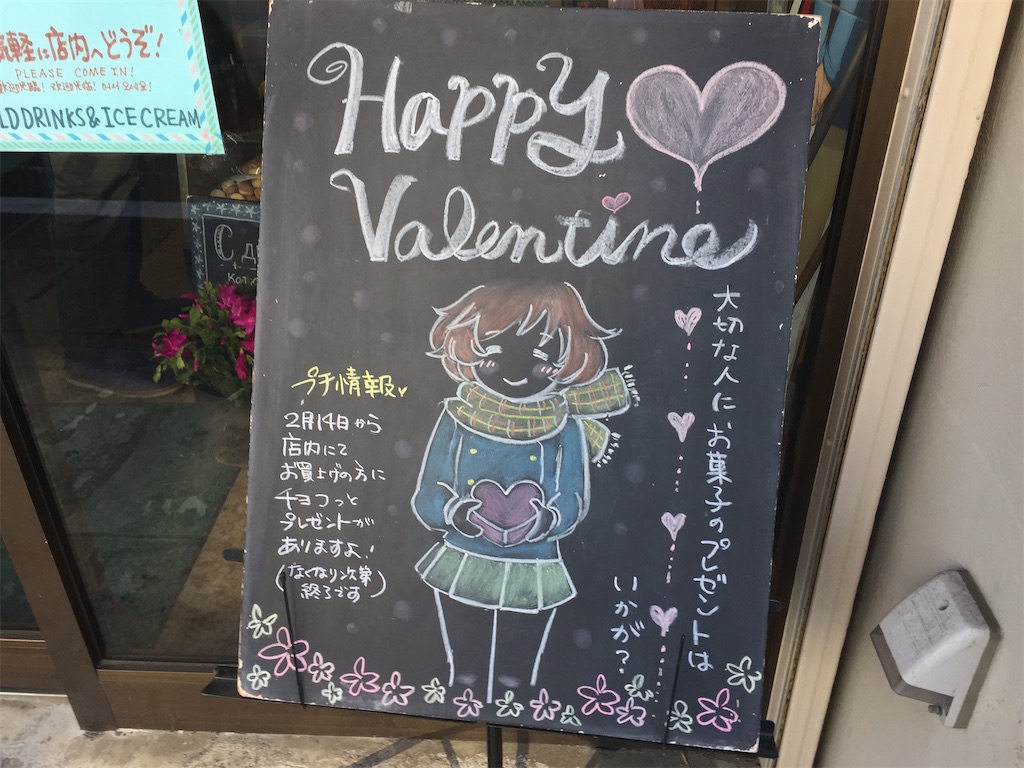 気軽に店内へどうぞ!
PLEASE COME IN!
LD DRINKS & ICE CREAM
Happy
Valentine
大切な人にお菓子のプレゼントは
いかが?
プチ情報
2月14日から
店内にて
お買上げの方に
チョコっと
プレゼントが
ありますよ!
(なくなり次第
終了です)